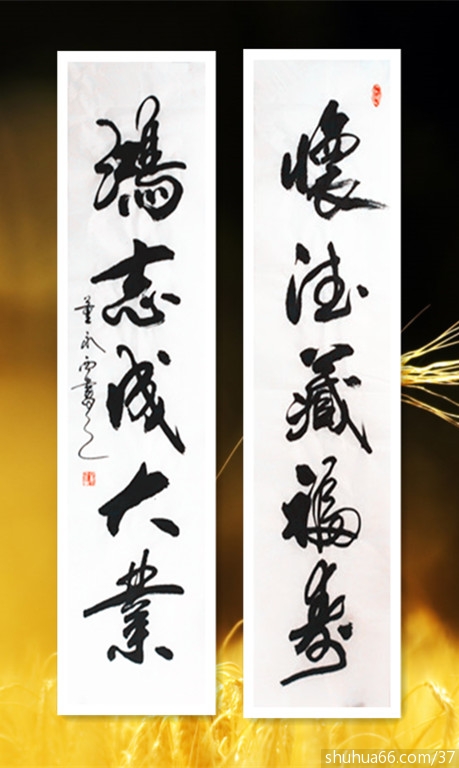 懷德藏福壽
鴻志成大業
董永西書之
shuhua66.com/37